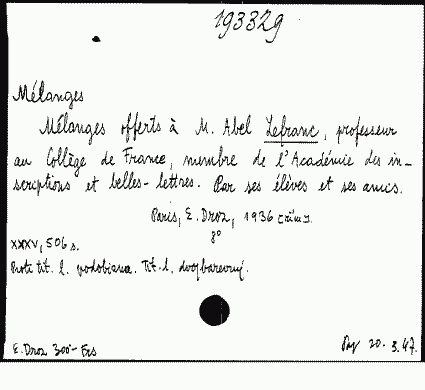 193329
Mélanges
Mélanges offerts à M. Abel Lefranc, professeur
au Collège de France, membre de l'Académie des in-
scriptions et belles-lettres. Par ses élèves et ses amis.
Paris, E. Droz, 1936
8°
XXXV, 506 s.
Proti tit. l. podobizna. Tit. l. dvojbarevný.
E. Droz 300- Frs
20. 3. 47.